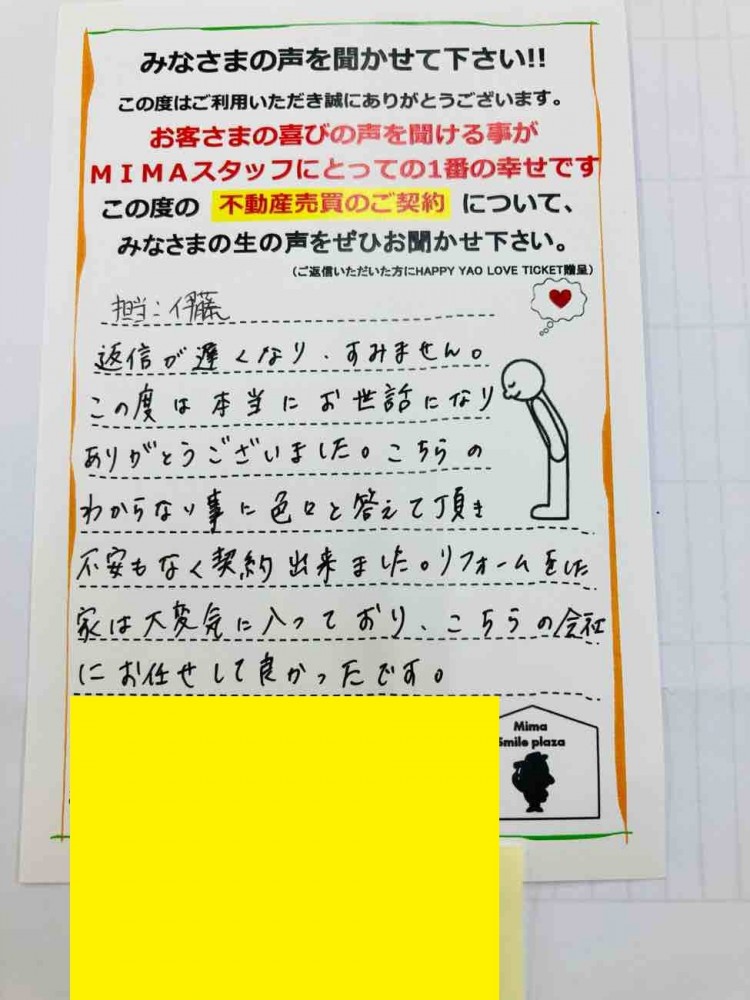 みなさまの声を聞かせて下さい!!
この度はご利用いただき誠にありがとうございます。
お客さまの喜びの声を聞ける事が
MIMAスタッフにとっての1番の幸せです
この度の 不動産売買のご契約 について、
みなさまの生の声をぜひお聞かせ下さい。
(ご返信いただいた方にHAPPY YAO LOVE TICKET贈呈)
担当:伊藤
返信が遅くなり、すみません。
この度は本当にお世話になり
ありがとうございました。こちらの
わからない事に色々と答えて頂き
不安もなく契約出来ました。リフォームをした
家は大変気に入っており、こちらの会社
にお任せして良かったです。
Mima
Smile plaza